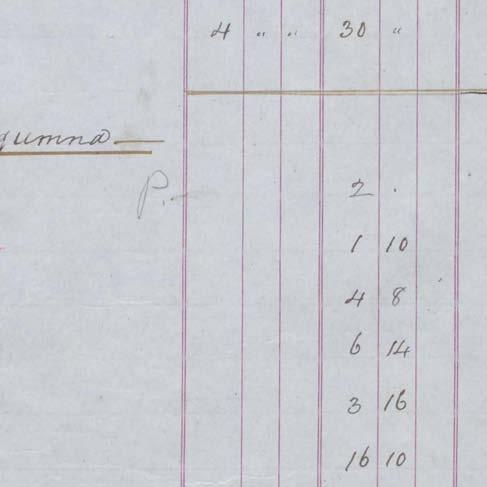 4 " " 30 "
gumna
P.
2 .
1 10
4 8
6 14
3 16
16 10